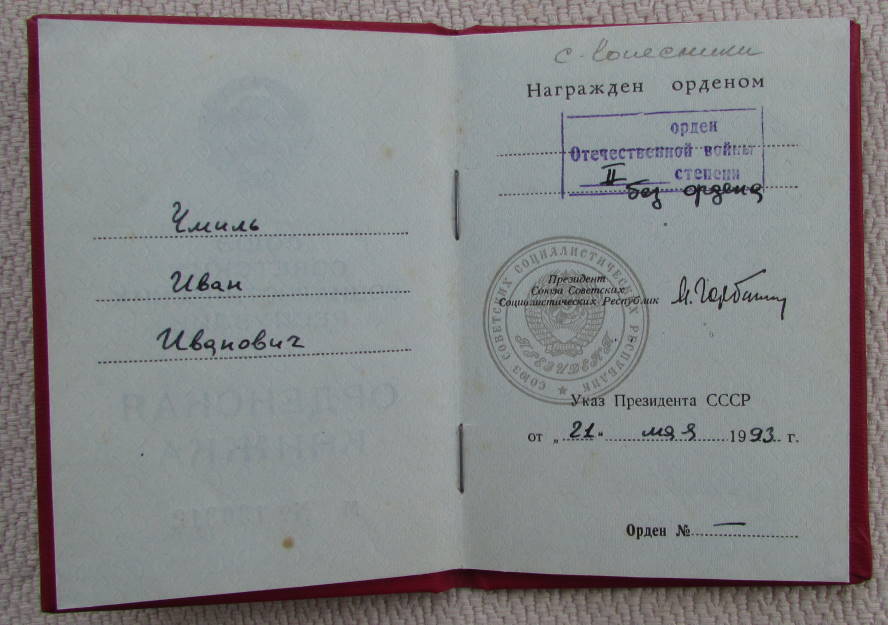 Чмиль
Иван
Иванович
с. Колесники
Награжден орденом
орден
Отечественной войны
II степени
без ордена
СОЮЗ СОВЕТСКИХ СОЦИАЛИСТИЧЕСКИХ РЕСПУБЛИК
Президент
Союза Советских
Социалистических Республик
М. Горбачёв
ПРЕЗИДЕНТ
Указ Президента СССР
от „21“ мая 1993 г.
Орден № —
ОРДЕНСКАЯ
КНИЖКА